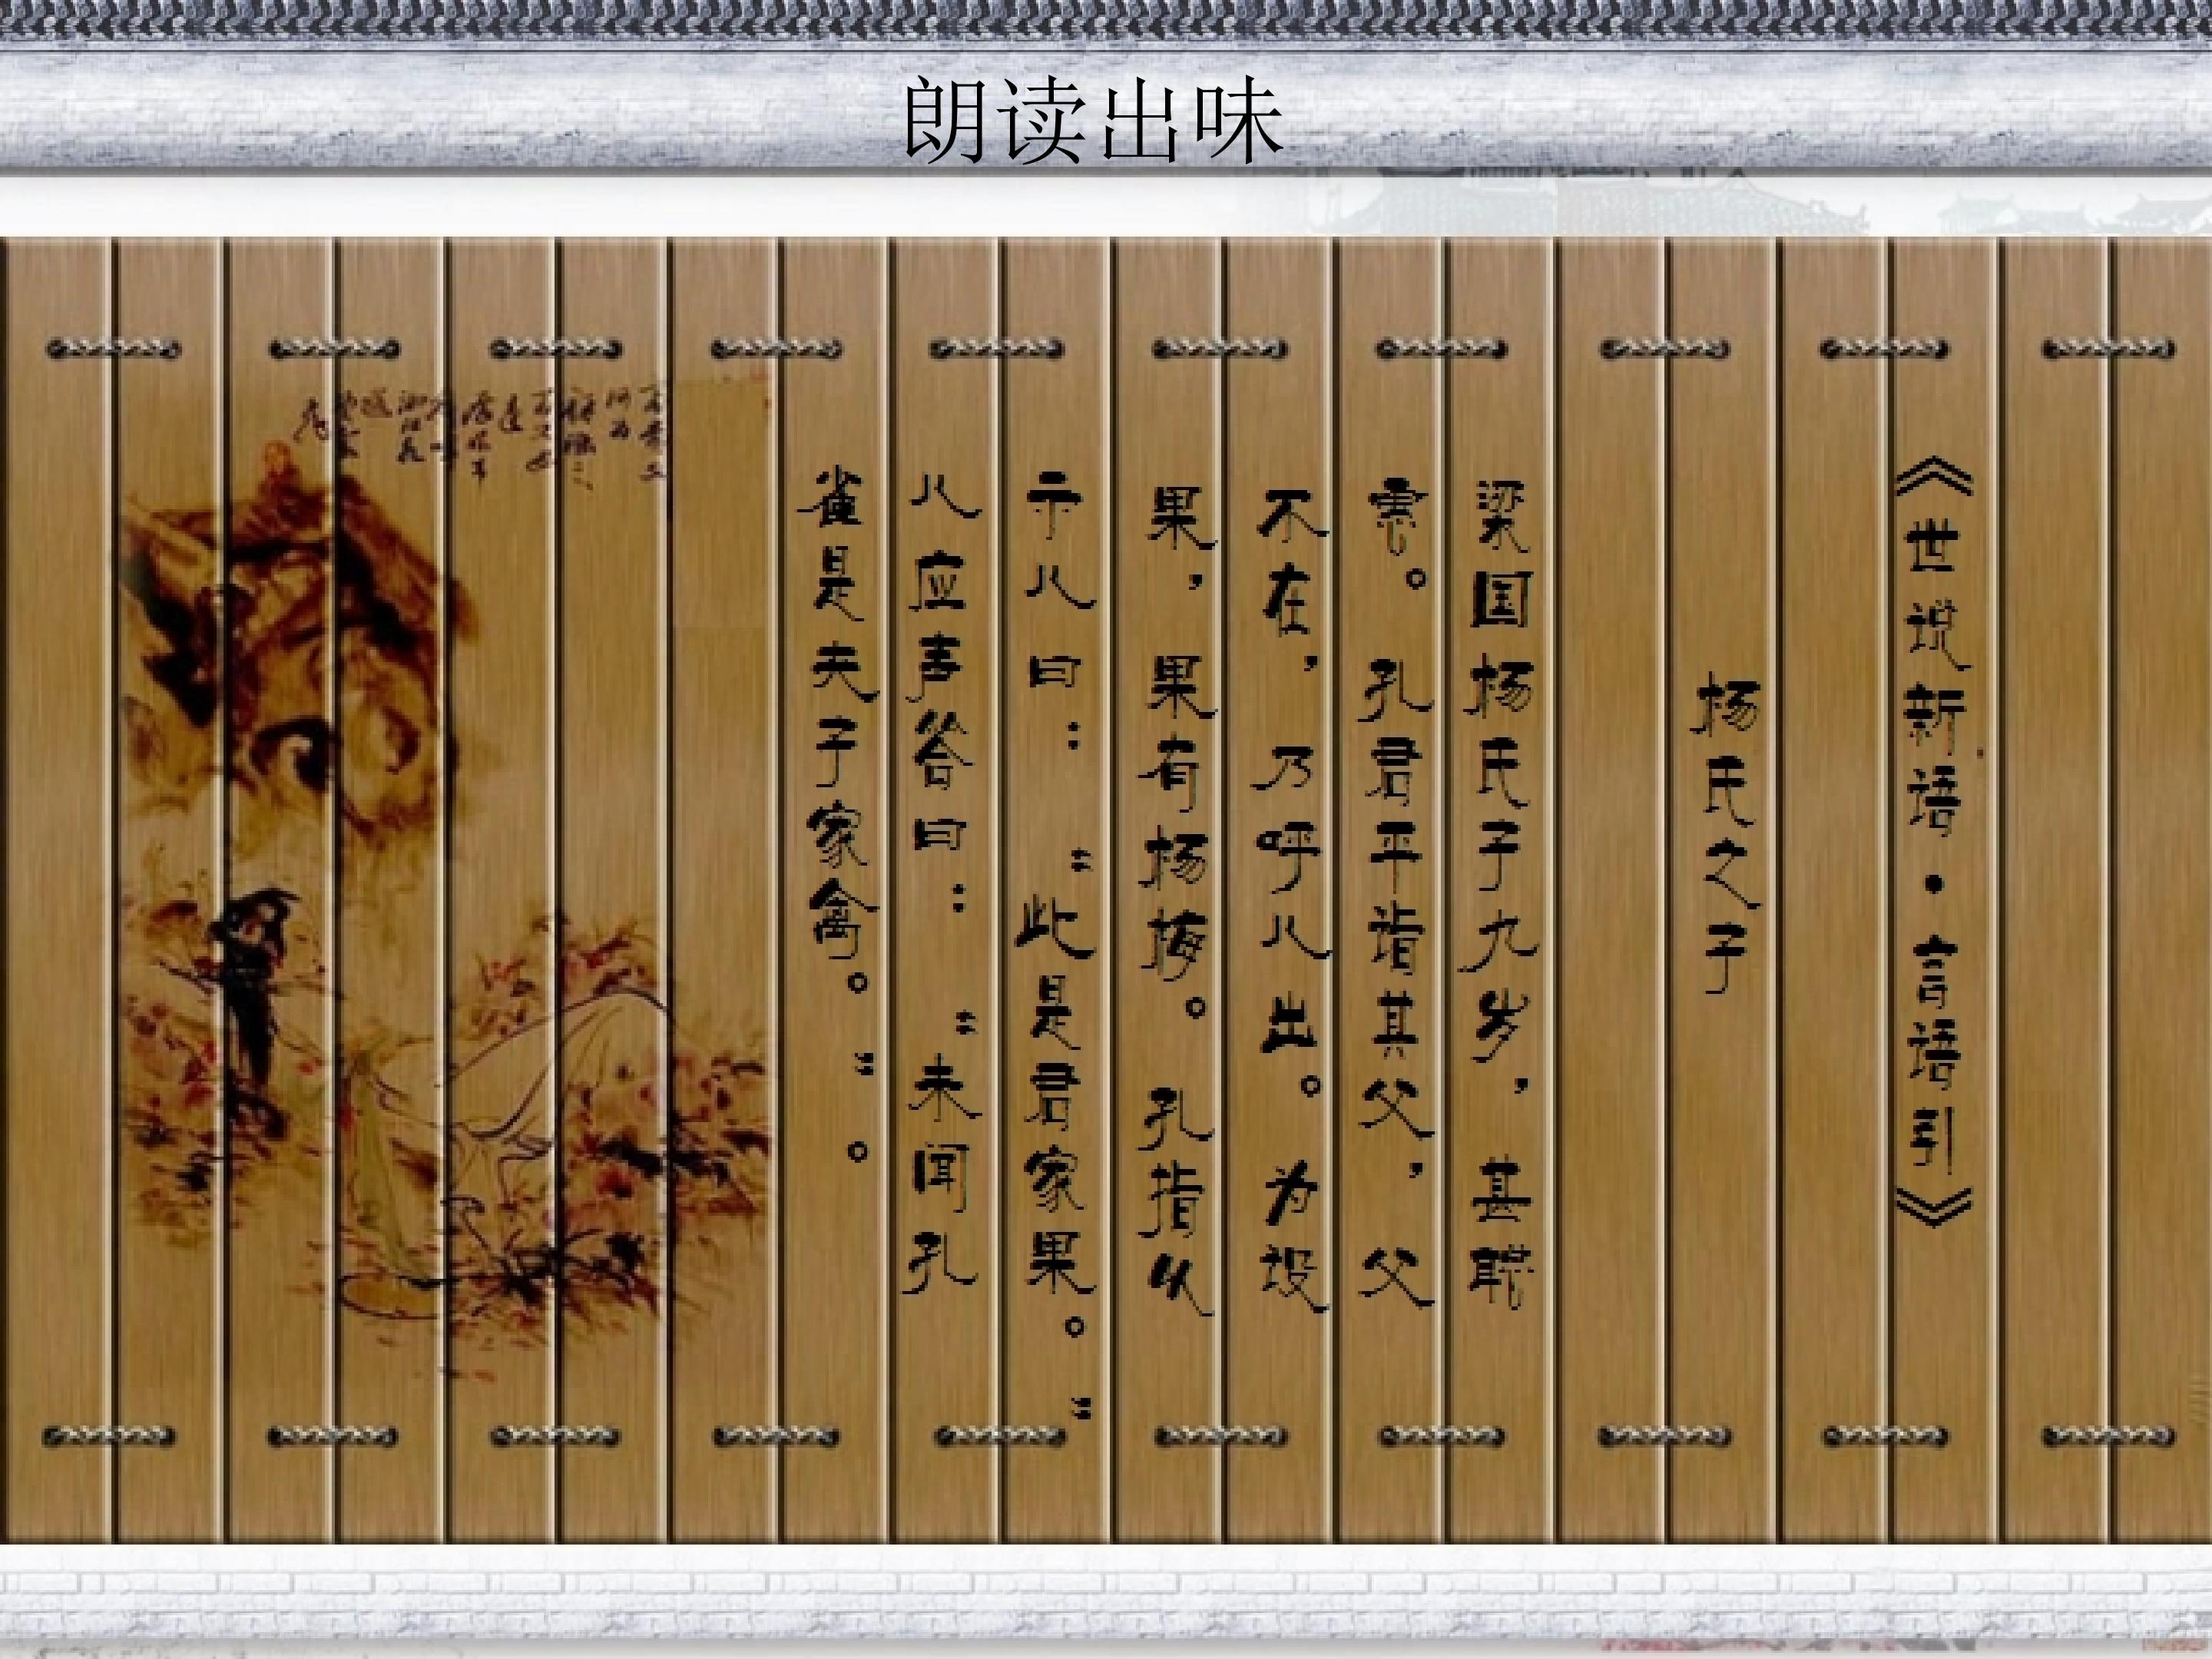 朗读出味
《世说新语·言语引》
杨氏之子
梁国杨氏子九岁，甚聪
惠。孔君平诣其父，父
不在，乃呼儿出。为设
果，果有杨梅。孔指以
示儿曰：“此是君家果。”
儿应声答曰：“未闻孔
雀是夫子家禽。”。